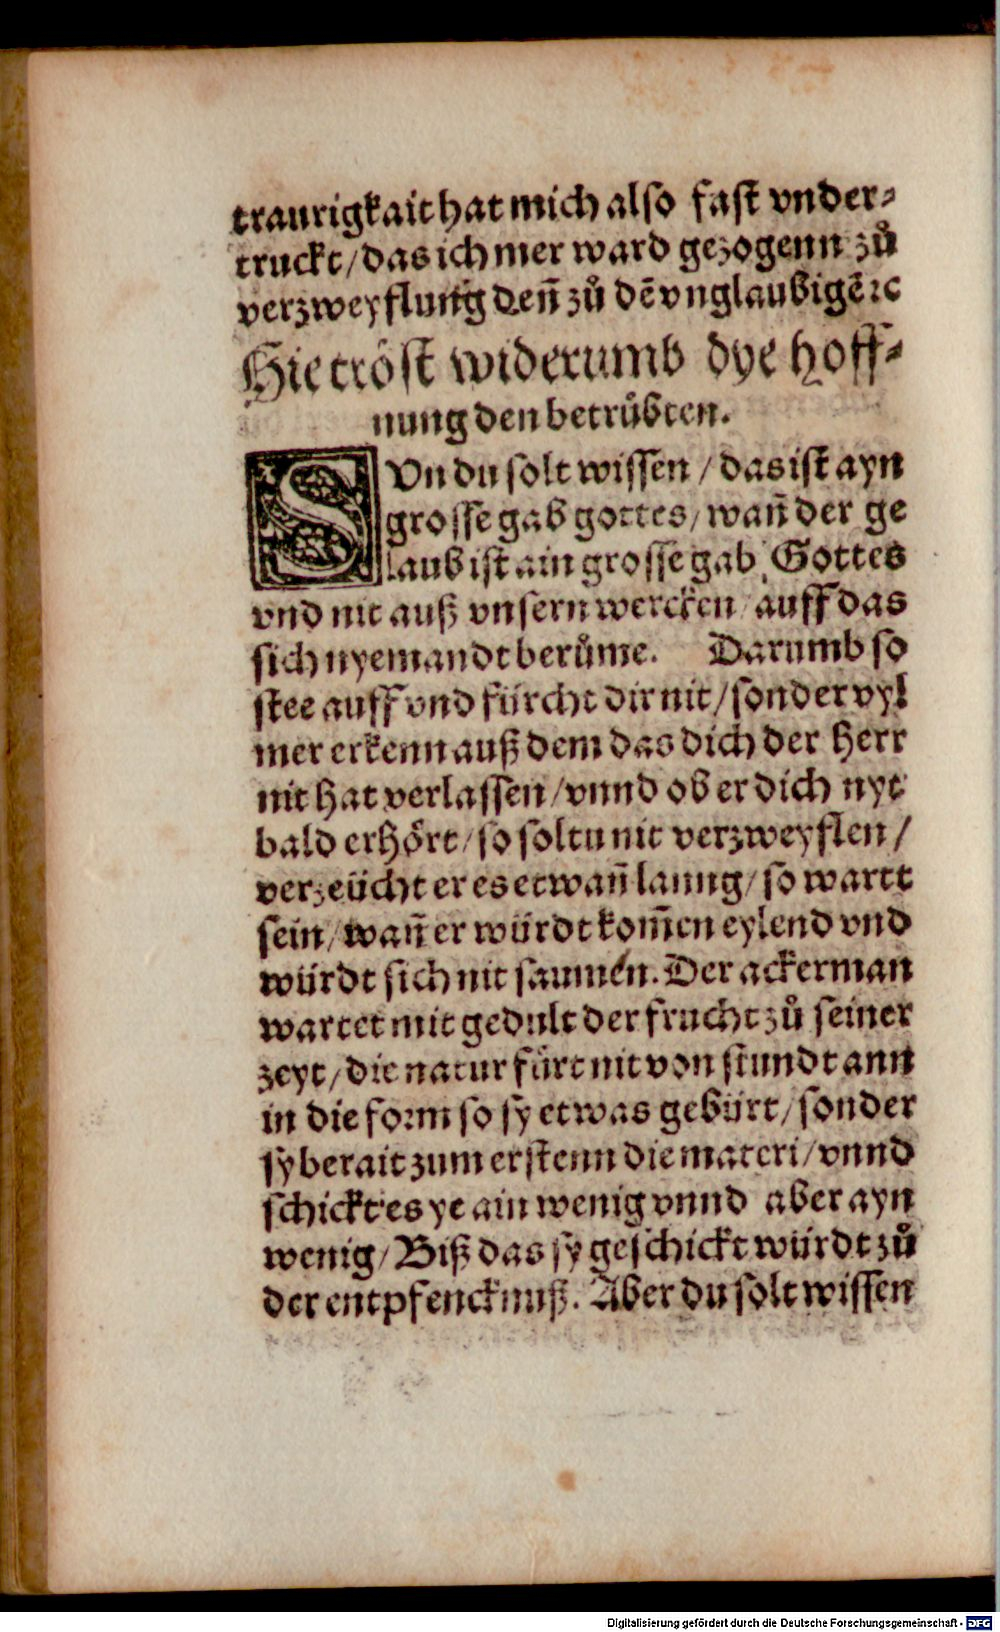 traurigkait hat mich also fast vnder⸗
truckt/das ich mer ward gezogenn zů
verzweyflung deñ zů dẽ vnglaubigẽ ꝛc
Hie tröst widerumb dye hoff⸗
nung den betrůbten.
SVn du solt wissen/das ist ayn
grosse gab gottes/wañ der ge
laub ist ain grosse gab Gottes
vnd nit auß vnsern wercken/auff das
sich nyemandt berůme. Darumb so
stee auff vnd fürcht dir nit/sonder vyl
mer erkenn auß dem das dich der Herr
nit hat verlassen/vnnd ob er dich nyt
bald erhört/so soltu nit verzweyflen/
verzeücht er es etwañ lanng/so wartt
sein/wañ er würdt kom̃en eylend vnd
würdt sich nit saumen. Der ackerman
wartet mit gedult der frucht zů seiner
zeyt/die natur fürt nit von stundt ann
in die form so sy etwas gebürt/sonder
sy berait zum erstenn die materi/vnnd
schickt es ye ain wenig vnnd aber ayn
wenig/Biß das sy geschickt würdt zů
der entpfencknuß. Aber du solt wissen
Digitalisierung gefördert durch die Deutsche Forschungsgemeinschaft - DFG